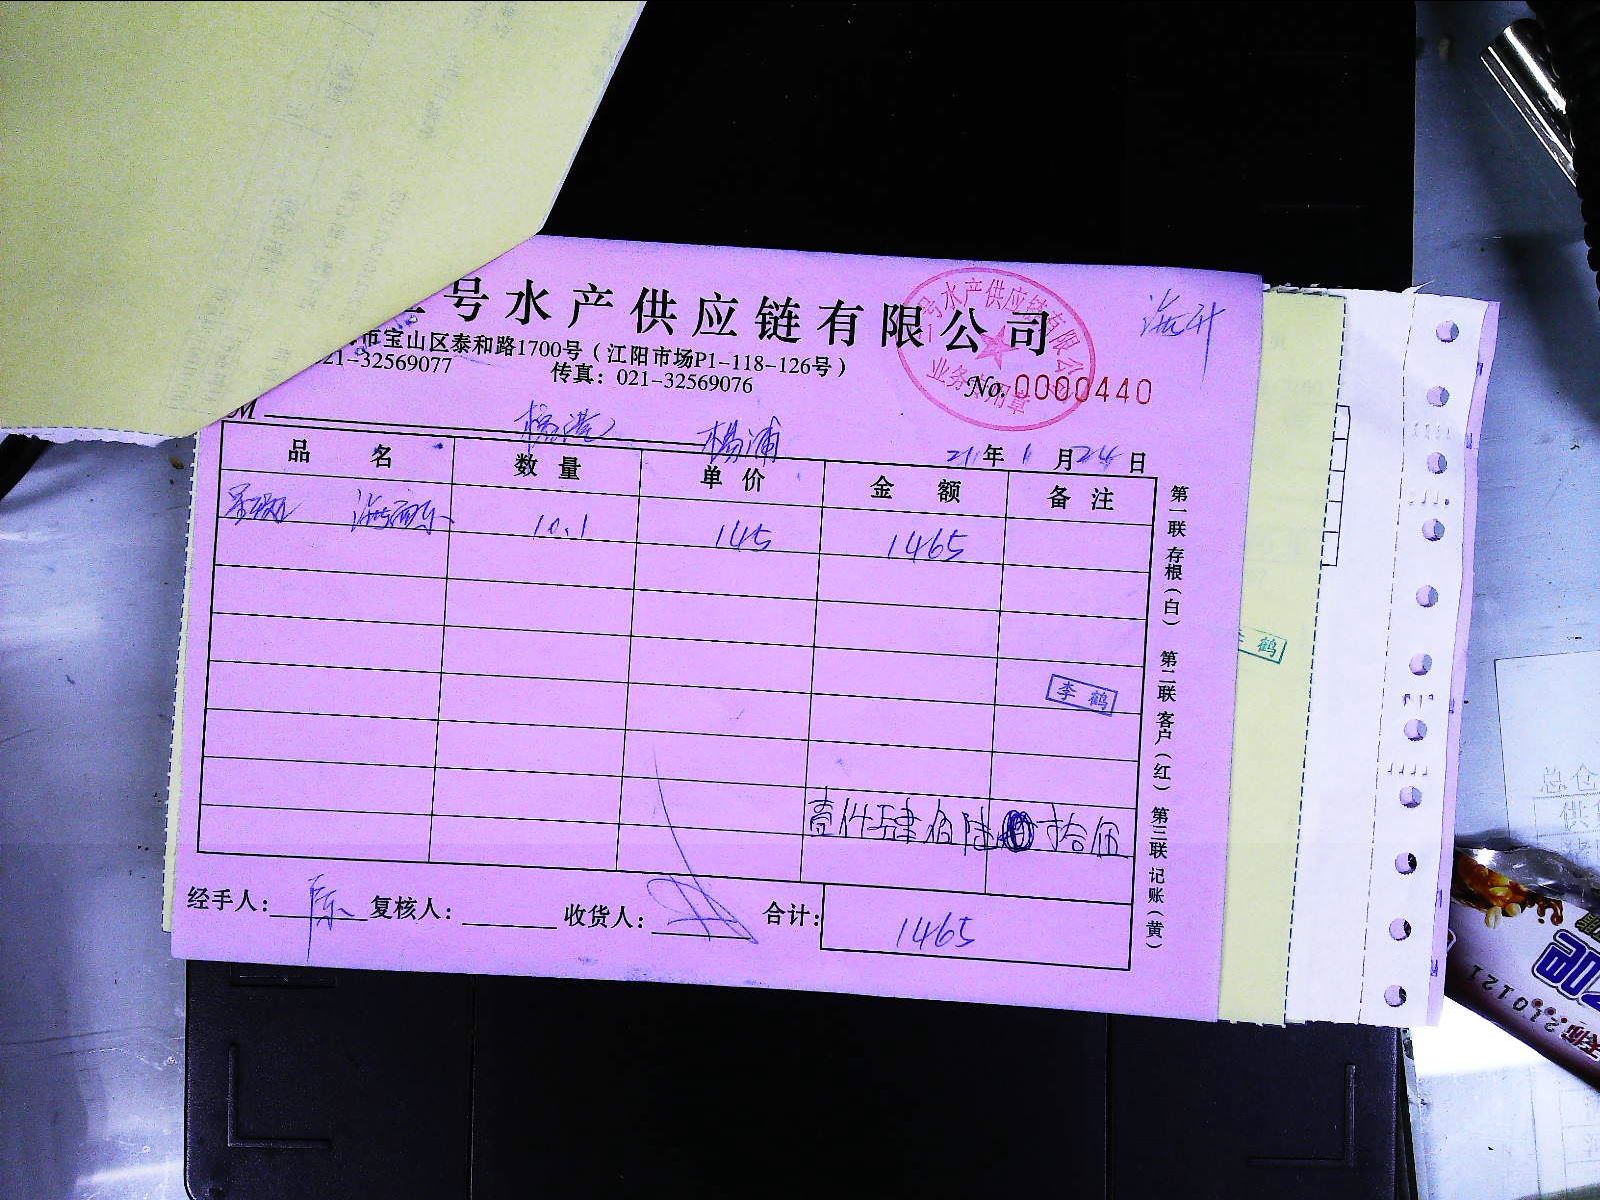 号水产供应链有限公司
号水产供应链有限公
业务专用章
海升
市宝山区泰和路1700号（江阳市场P1-118-126号）
21-32569077 传真：021-32569076
No. 0000440
M 杨浦
21年1月24日
品名 数量 单价 金额 备注
10.1 145 1465
第一联存根（白） 第二联客户（红） 第三联记账（黄）
李鹤
鹤
壹仟肆佰陆拾伍
经手人： 陈 复核人： 收货人： 合计： 1465
总仓
供
210121